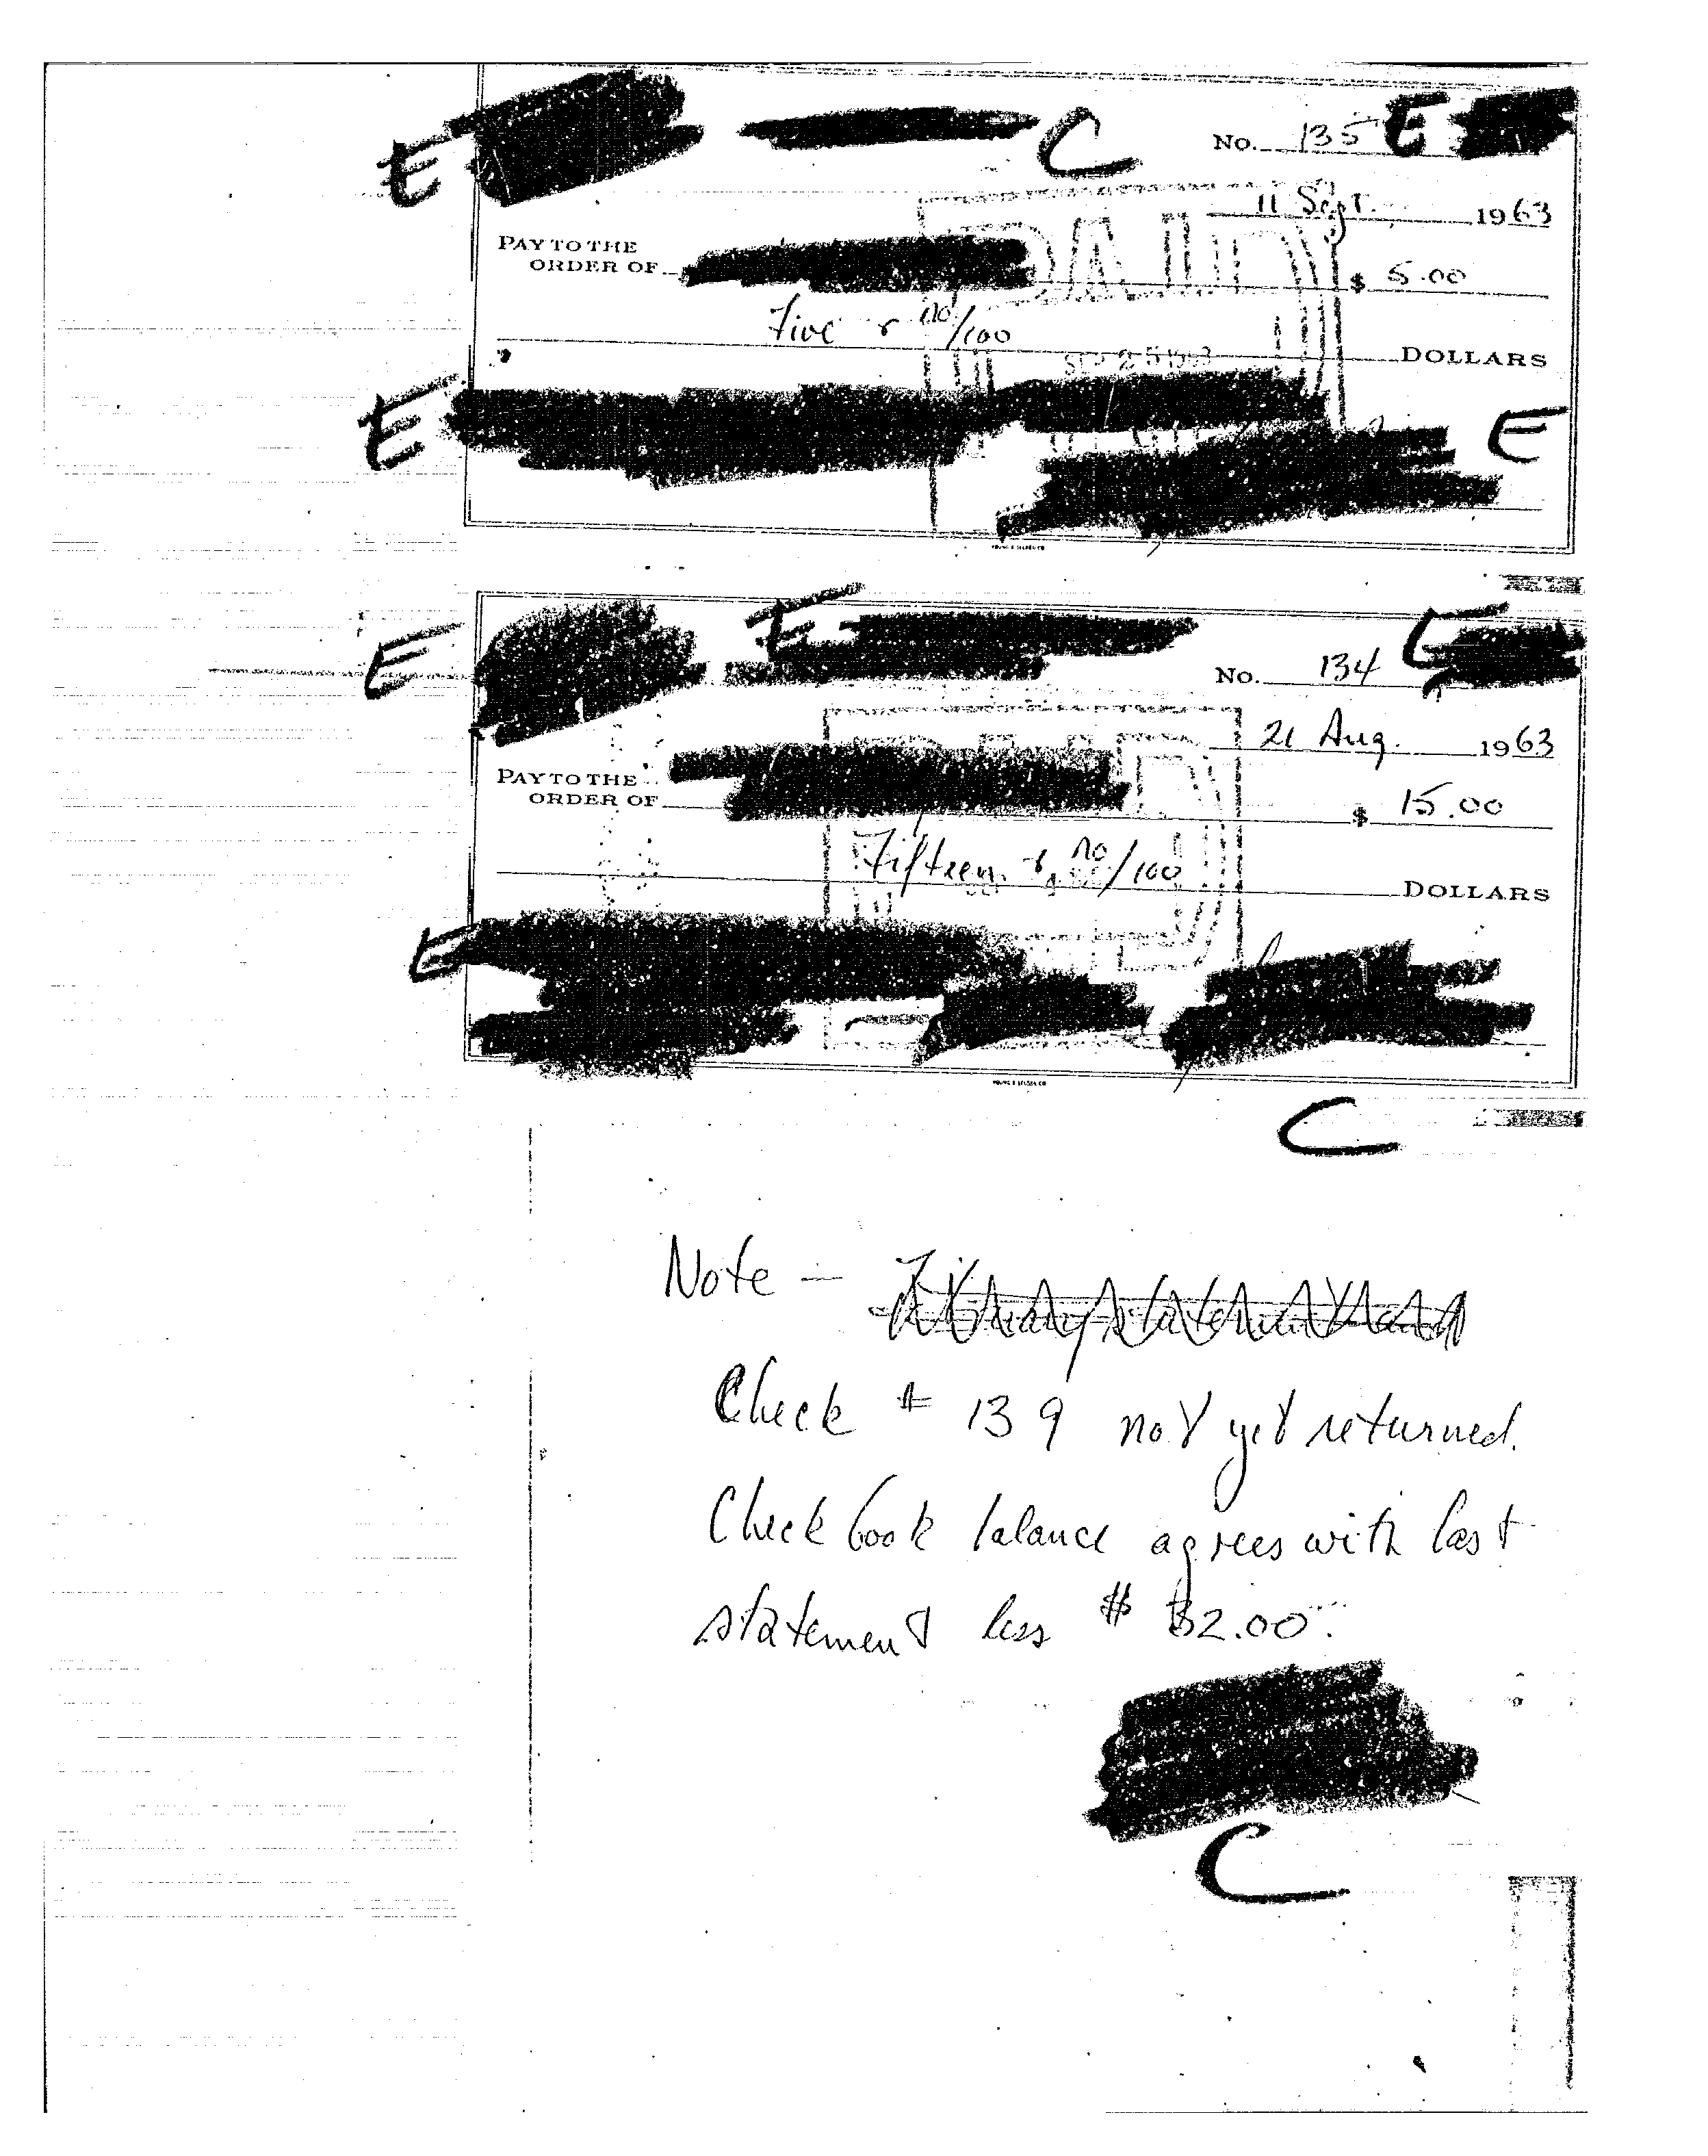 E C No. 135 E
11 Sept. 1963
PAID
PAY TO THE
ORDER OF $ 5.00
Five & no/100
DOLLARS
SEP 25 1963
E E
YOUNG & SELDEN CO
E E C
No. 134
21 Aug. 1963
PAID
PAY TO THE
ORDER OF $ 15.00
Fifteen & no/100
DOLLARS
E
YOUNG & SELDEN CO
C
Note –
Check # 139 not yet returned.
Check book balance agrees with last
statement less # $2.00.
C